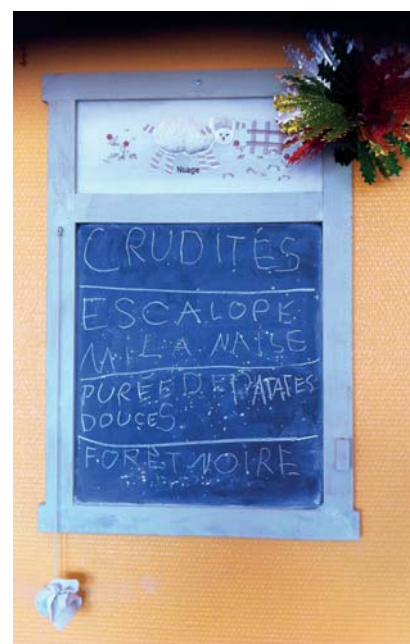 Nuage
CRUDITÉS
ESCALOPE
MILANAISE
PURÉE DE PATATES
DOUCES
FORÊT NOIRE